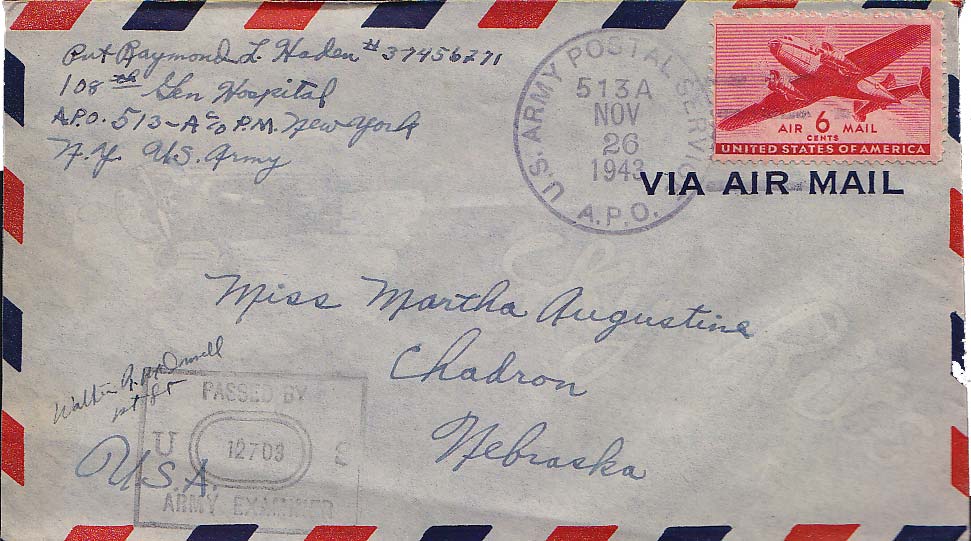 Pvt Raymond L. Haden # 37456271
108th Gen Hospital
A.P.O. 513-A c/o P.M. New York
N.Y. U.S. Army
U.S. ARMY POSTAL SERVICE
513A
NOV
26
1943
A.P.O.
AIR 6 MAIL
CENTS
UNITED STATES OF AMERICA
VIA AIR MAIL
Miss Martha Augustine
Chadron
Nebraska
U.S.A.
Walter
1st Lt
PASSED BY
U S
12703
ARMY EXAMINER